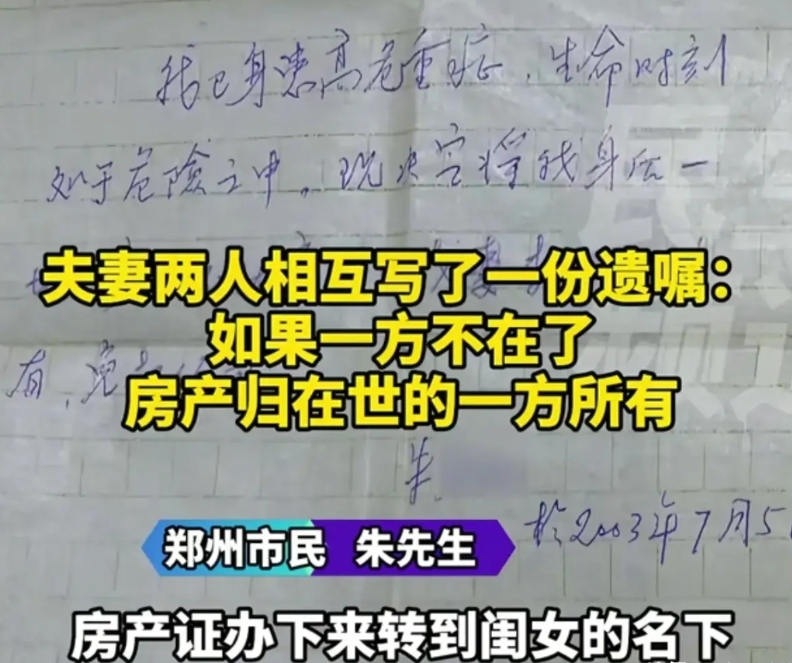 我已身患高危重症，生命时刻
处于危險之中，现决定将我身后一
夫妻两人相互写了一份遗嘱：
如果一方不在了
有，
房产归在世的一方所有
朱
于2003年7月5
郑州市民 朱先生
房产证办下来转到闺女的名下